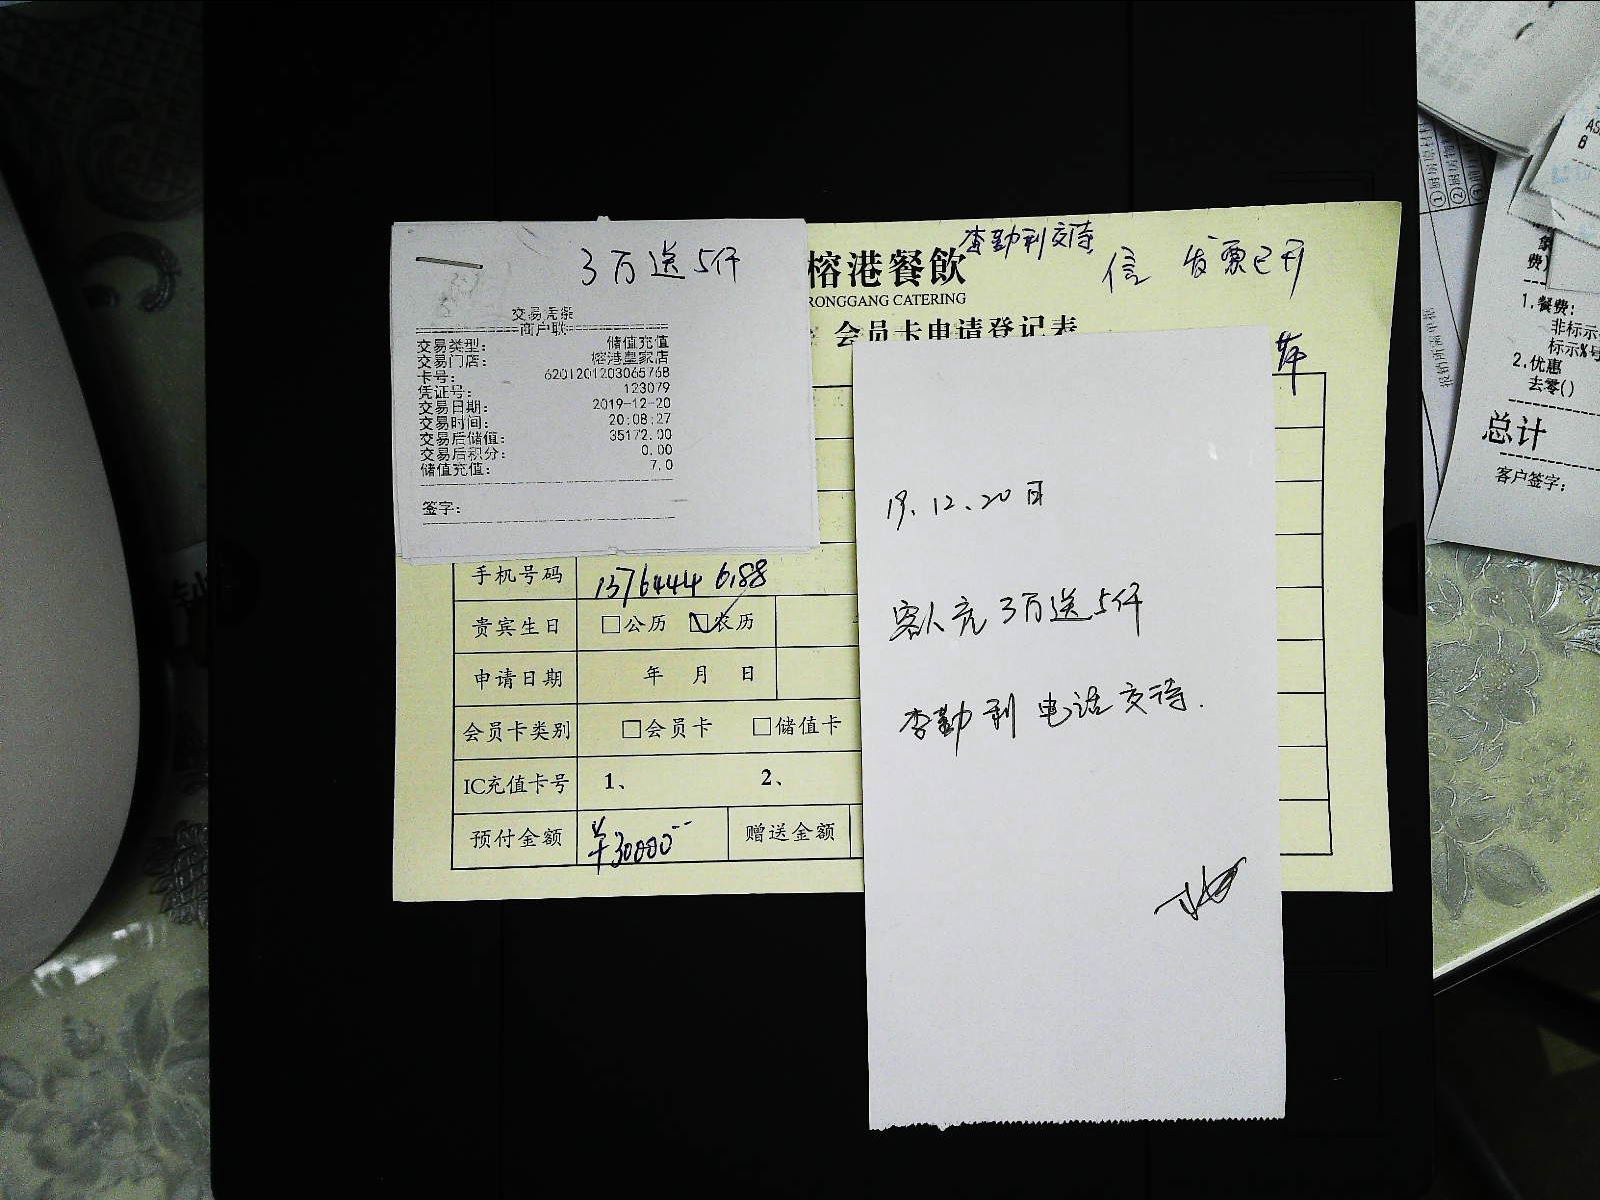 3万送5仟
交易凭条
商户联
交易类型: 储值充值
交易门店: 榕港皇家店
卡号: 6201201203065768
凭证号: 123079
交易日期: 2019-12-20
交易时间: 20:08:27
交易后储值: 35172.00
交易后积分: 0.00
储值充值: 7.0
签字:
李勤利交待
信 发票已开
榕港餐飲
RONGGANG CATERING
会员卡申请登记表
手机号码 13764446188
贵宾生日 □公历 □农历
申请日期 年 月 日
会员卡类别 □会员卡 □储值卡
IC充值卡号 1、 2、
预付金额 ¥30000 赠送金额
19.12.20日
客人充3万送5仟
李勤利电话交待.
1.餐费:
非标示
标示%号
2.优惠
去零()
总计
客户签字: